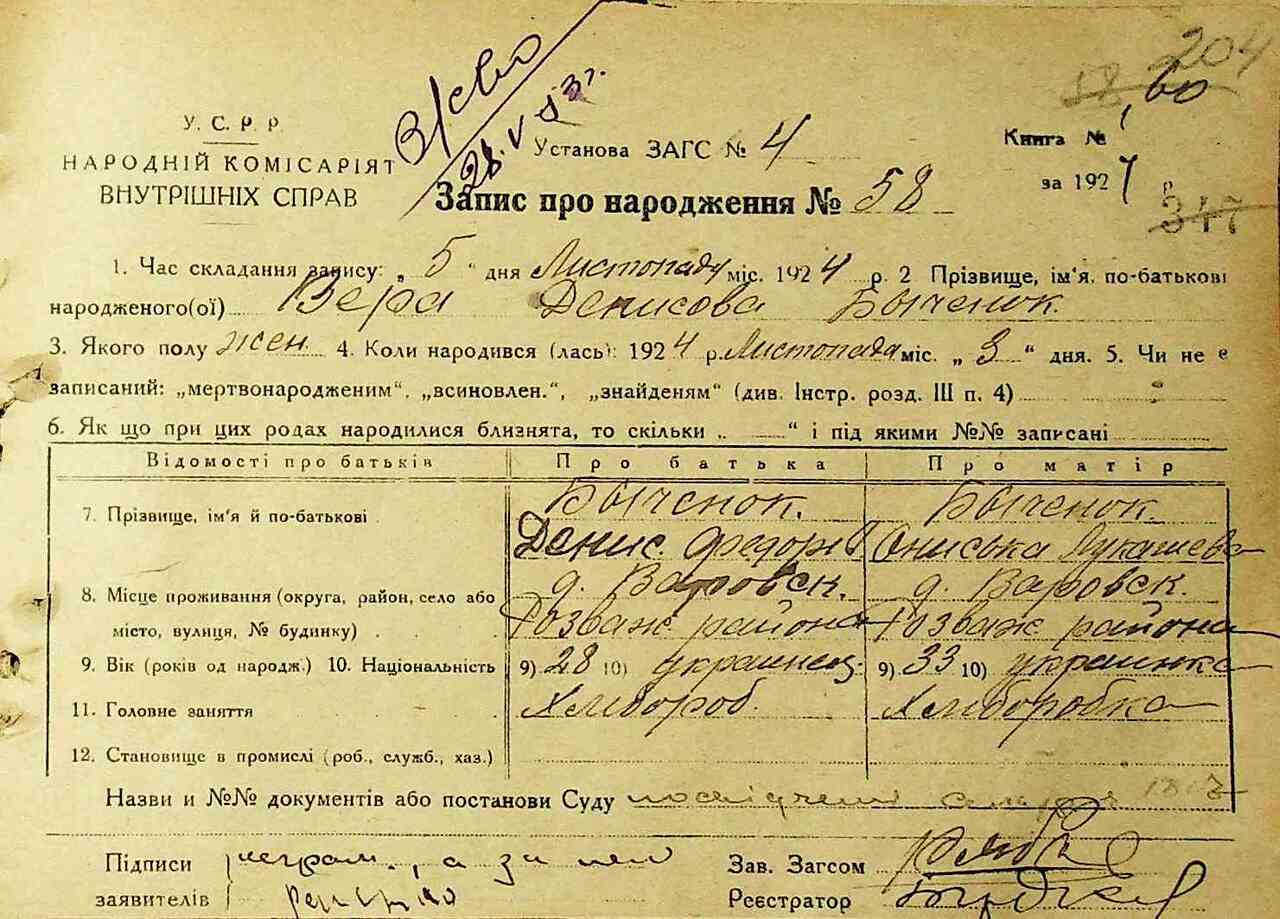 204
58 60
28. V 53 г.
У. С. Р. Р.
НАРОДНІЙ КОМІСАРІЯТ
ВНУТРІШНІХ СПРАВ
Установа ЗАГС № 4
Книга №
за 192 р.
347
Запис про народження № 58
1. Час складання запису: „ 5 “ дня Листопада міс. 1924 р. 2 Прізвище, ім'я. по-батькові
народженого(ої) Вера Денисова Быченок.
3. Якого полу жен 4. Коли народився (лась): 1924 р. Листопада міс. „ 3 “ дня. 5. Чи не є
записаний: „мертвонародженим“, „всиновлен.“, „знайденям“ (див. Інстр. розд. III п. 4)
6. Як що при цих родах народилися близнята, то скільки „ “ і під якими №№ записані
Відомості про батьків Про батька Про матір
7. Прізвище, ім'я й по-батькові Быченок. Быченок
Денис Федоров Ониська Лукашева
8. Місце проживання (округа, район, село або д. Варовск. д. Варовск.
місто, вулиця, № будинку) Розваж района Розваж района
9. Вік (років од народж.) 10. Національність 9) 28 10) украинец 9) 33 10) украинка
11. Головне заняття Хлибороб Хлиборобка
12. Становище в промислі (роб., служб., хаз.)
Назви и №№ документів або постанови Суду
Підписи неграм., а за
заявителів
Зав. Загсом
Реєстратор